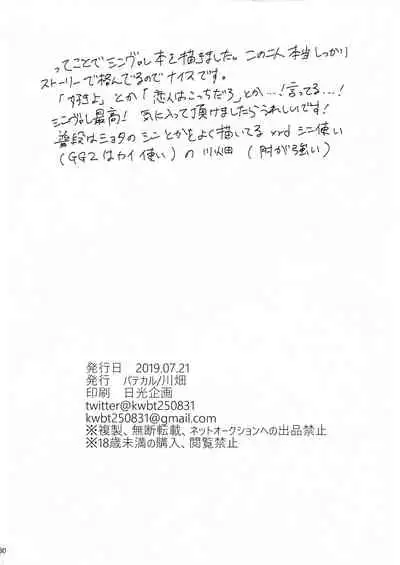 ってことでシンヴェレ本を描きました。この二人本当しっかり
ストーリーで絡んでるのでナイスです。
「好きよ」とか「恋人はこっちだろ」とか…！言ってる…！
シンヴェレ最高！ 気に入って頂けましたらうれしいです！
普段はショタのシンとかをよく描いてる xrd シン使い
(GG2はカイ使い) の 川畑 (肘が強い)
発行日 2019.07.21
発行 バテカル/川畑
印刷 日光企画
twitter@kwbt250831
kwbt250831@gmail.com
※複製、無断転載、ネットオークションへの出品禁止
※18歳未満の購入、閲覧禁止
30